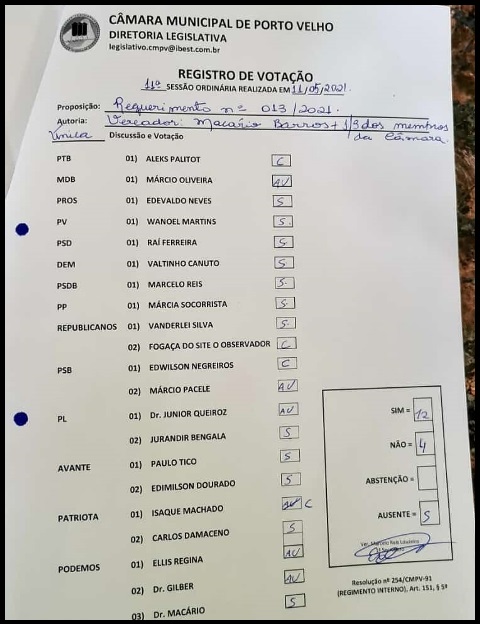 CÂMARA MUNICIPAL DE PORTO VELHO
DIRETORIA LEGISLATIVA
legislativo.cmpv@ibest.com.br
REGISTRO DE VOTAÇÃO
11ª SESSÃO ORDINÁRIA REALIZADA EM 11/05/2021.
Proposição: Requerimento nº 013/2021.
Autoria: Vereador: Macário Barros + 1/3 dos membros
da Câmara.
Única Discussão e Votação
PTB 01) ALEKS PALITOT C
MDB 01) MÁRCIO OLIVEIRA AU
PROS 01) EDEVALDO NEVES S
PV 01) WANOEL MARTINS S
PSD 01) RAÍ FERREIRA S
DEM 01) VALTINHO CANUTO S
PSDB 01) MARCELO REIS S
PP 01) MÁRCIA SOCORRISTA S
REPUBLICANOS 01) VANDERLEI SILVA S
02) FOGAÇA DO SITE O OBSERVADOR C
PSB 01) EDWILSON NEGREIROS C
02) MÁRCIO PACELE AU
PL 01) Dr. JUNIOR QUEIROZ AU
02) JURANDIR BENGALA S
AVANTE 01) PAULO TICO S
02) EDIMILSON DOURADO S
PATRIOTA 01) ISAQUE MACHADO AU C
02) CARLOS DAMACENO S
PODEMOS 01) ELLIS REGINA AU
02) Dr. GILBER AU
03) Dr. MACÁRIO S
SIM = 12
NÃO = 4
ABSTENÇÃO =
AUSENTE = 5
Ver. Marcelo Reis
Resolução nº 254/CMPV-91
(REGIMENTO INTERNO), Art. 151, § 5º